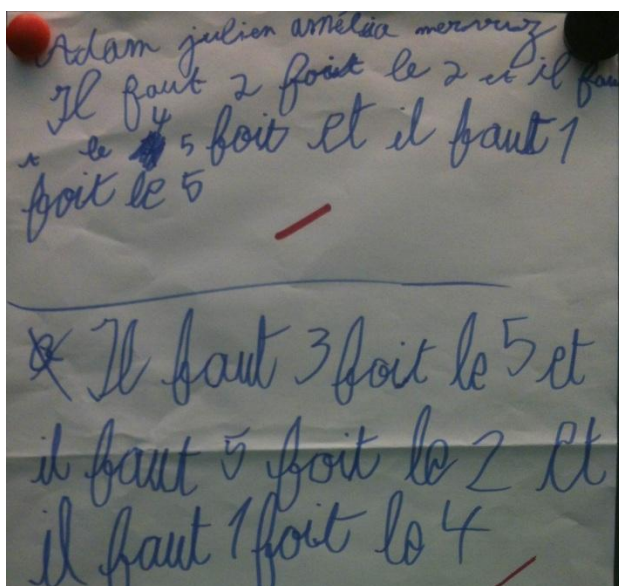 Adam julien amélia
Il faut 2 foit le 2 et il fau
t le 4 5 foit et il faut 1
foit le 5
Il faut 3 foit le 5 et
il faut 5 foit le 2 et
il faut 1 foit le 4